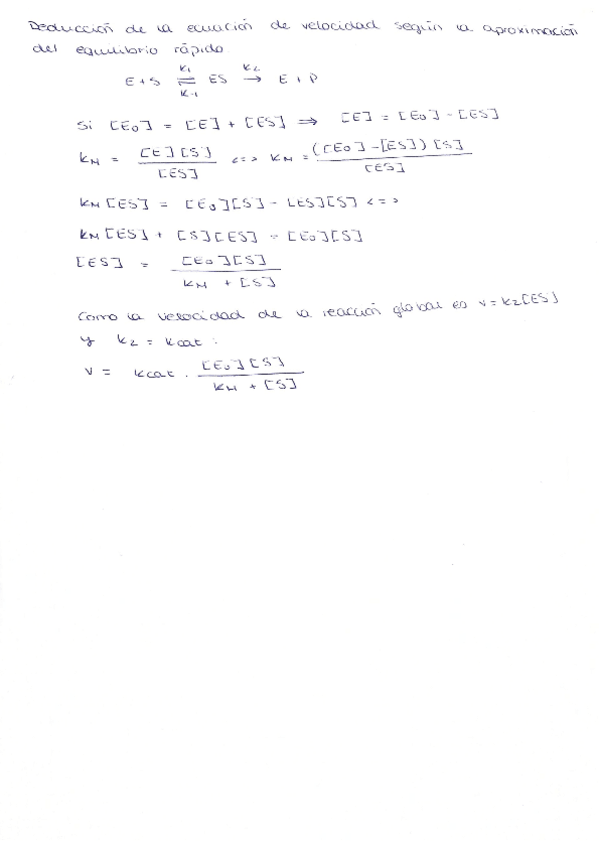 Deducción de la ecuación de velocidad según la aproximación
del equilibrio rápido.
E + S ⇌ ES → E + P (k1, k-1, k2)
Si [E0] = [E] + [ES] ⇒ [E] = [E0] - [ES]
kM = [E][S] / [ES] <=> kM = ([E0] - [ES]) [S] / [ES]
kM [ES] = [E0][S] - [ES][S] <=>
kM [ES] + [S][ES] = [E0][S]
[ES] = [E0][S] / kM + [S]
Como la velocidad de la reacción global es v = k2[ES]
y k2 = kcat :
v = kcat · [E0][S] / kM + [S]